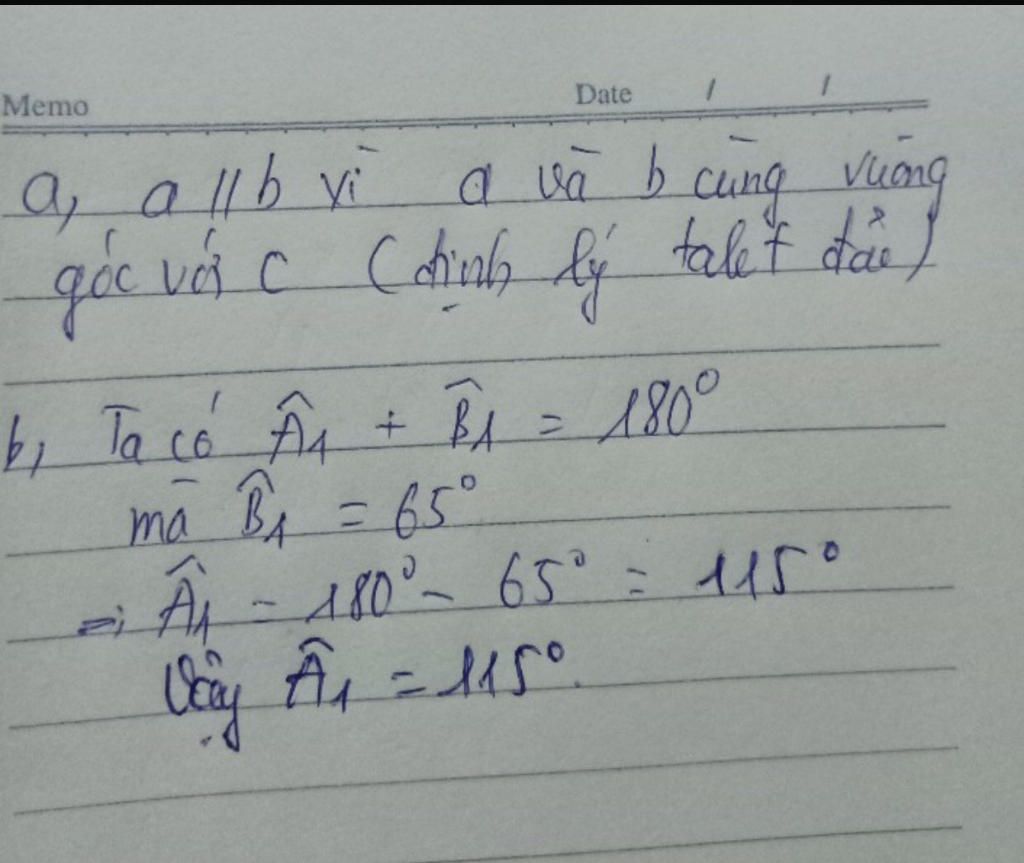 Memo Date / /
a, a // b vì a và b cùng vuông
góc với c (định lý talet đảo)
b, Ta có Â1 + B̂1 = 180°
mà B̂1 = 65°
=> Â1 = 180° - 65° = 115°
Vậy Â1 = 115°.